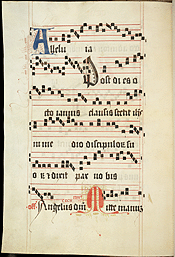 Allelu ia
Post dies o
cto ianuis clausis stetit ihs
in me dio discipulor su
o r dixit pax vobis
off. Angelus dni Mitte manum